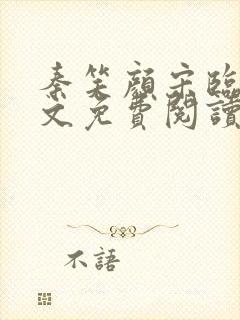 秦笑顏宋臨
文免費閱讀
不語